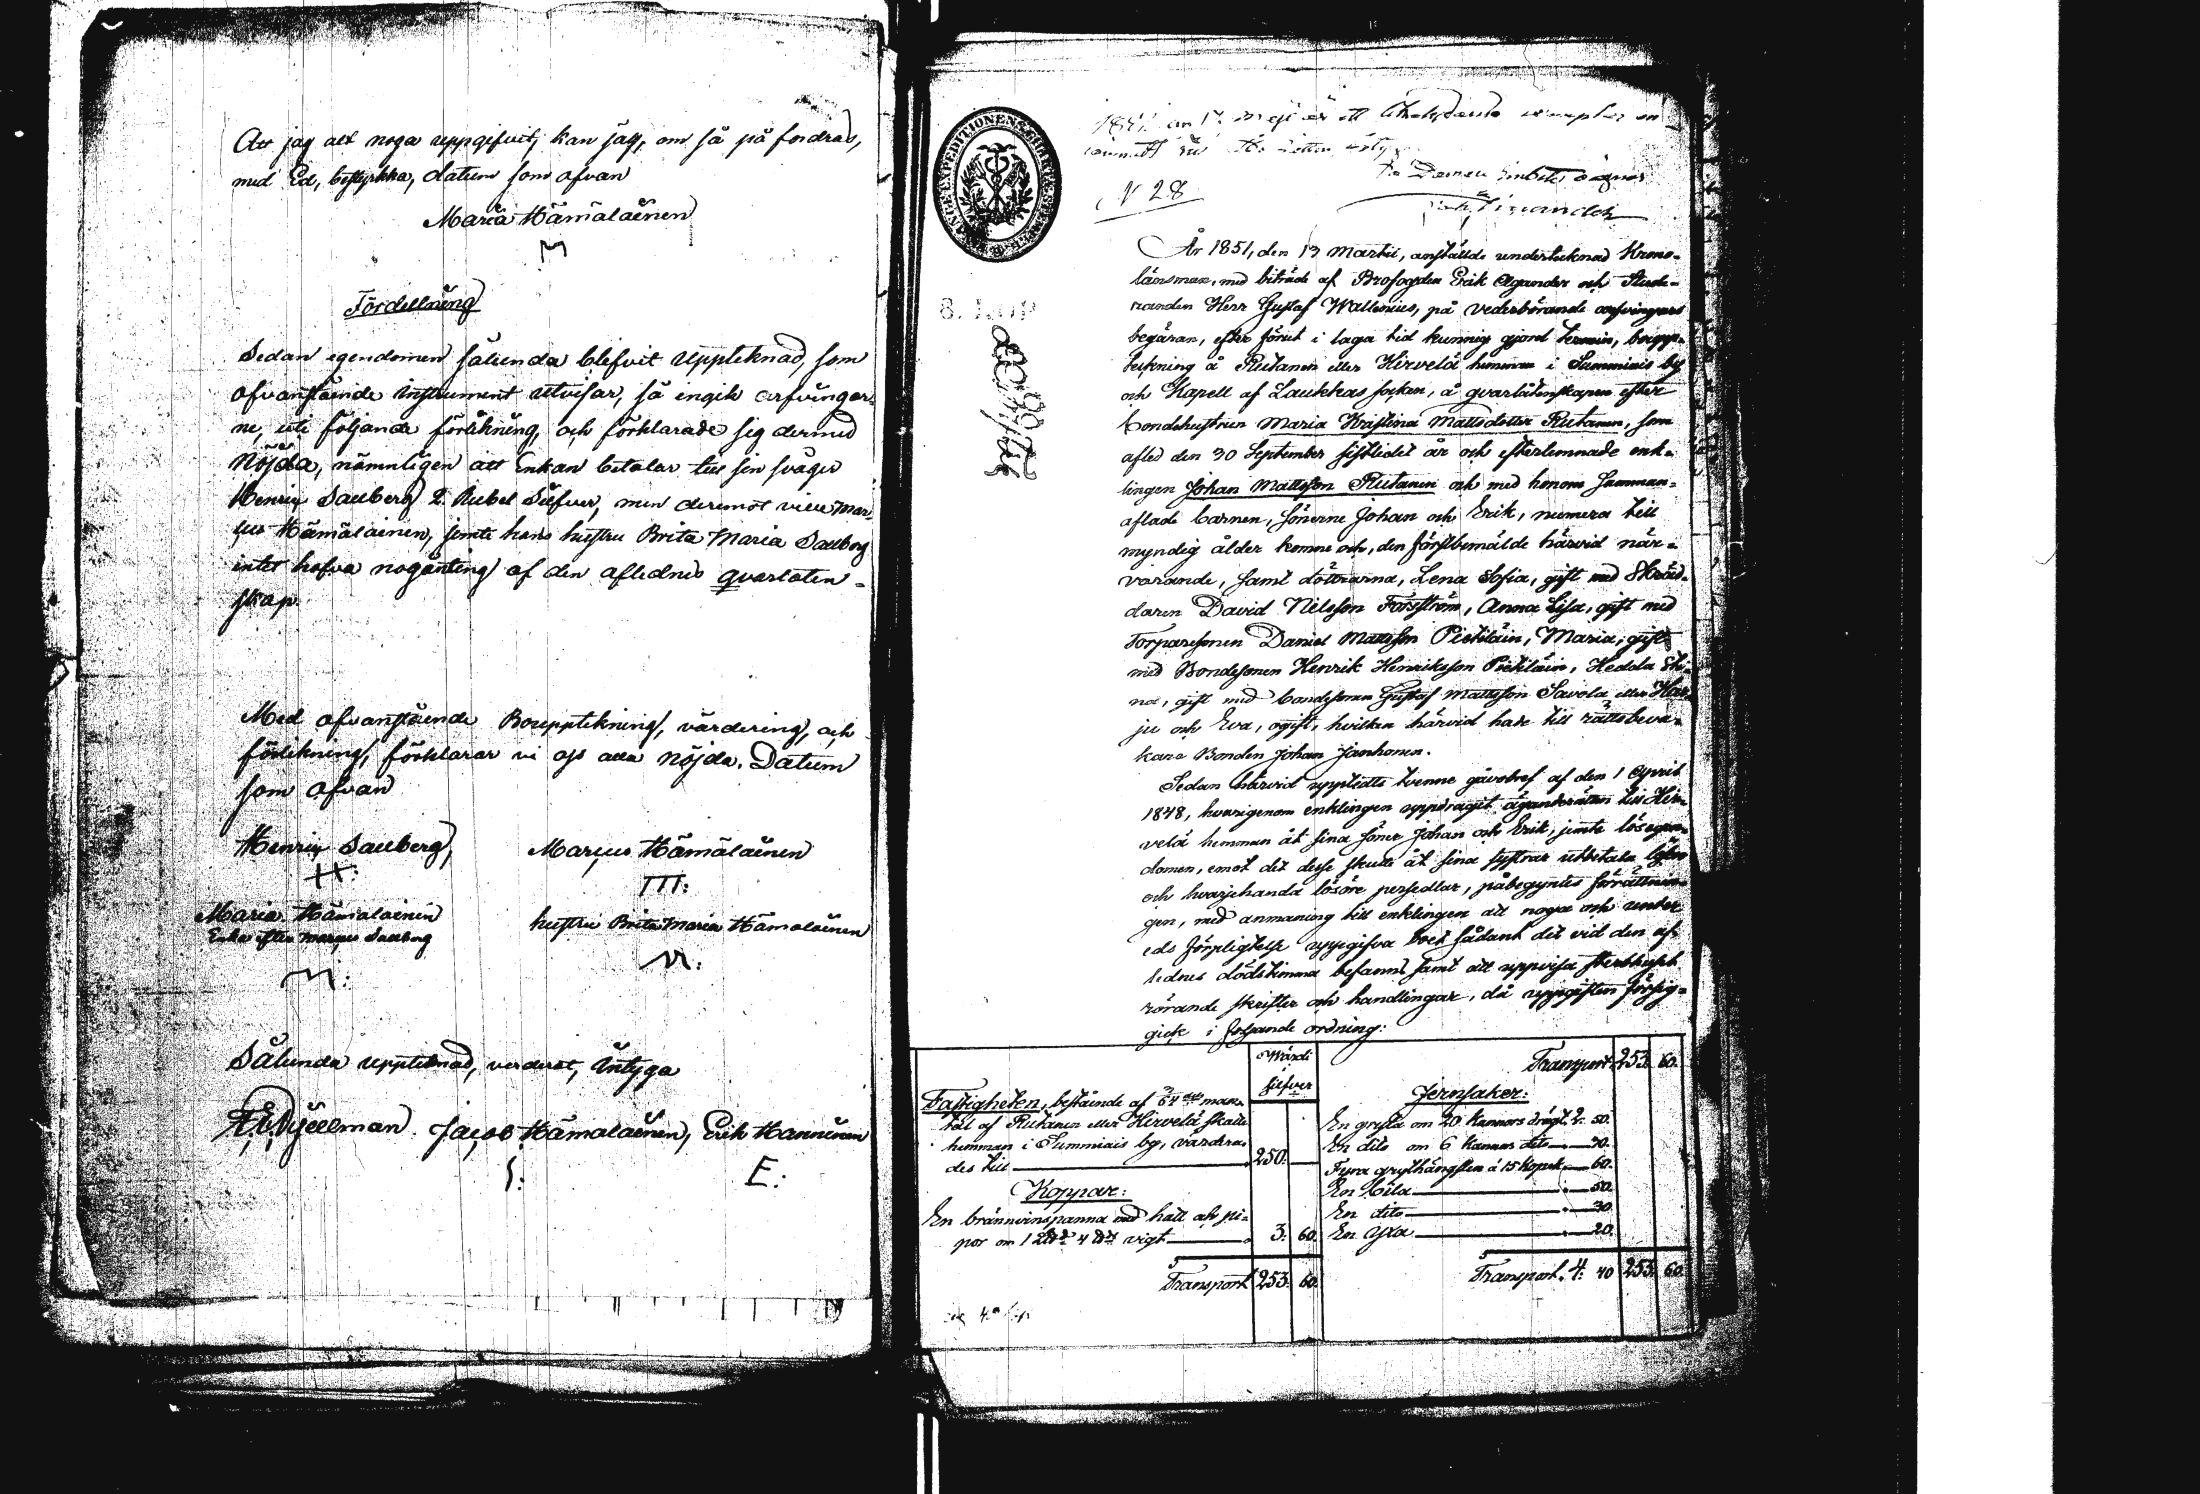 Att jag alt noga uppgifvit, kan jag, om så på fordras,
med Ed, bestyrkka, datum som ofvan
Maria Hämäläinen
M
Fördellning
Sedan egendomen sålunda blifvit uppteknad, som
ofvanstående instrument utvisar, så ingik arfvingar-
ne, uti följande förlikning, och förklarade sig dermed
Nöjda, nämnligen att Enkan betalar till sin svåger
Henrix Sallberg 2 Rubel Silfver, men deremot
Hämäläinen, jemte hans hustru Brita Maria Sallberg
intet hafva någonting af den aflednes qvarlåten-
skap.
Med ofvanstående Bouppteknin̄g, värdering, och
förlikning, förklarar vi oss alla nöjda. Datum
som ofvan
Henrix Sallberg,
H:
Marcus Hämäläinen
III:
Maria Hämäläinen
Enka efter Marcus Sallberg
M:
hustru Brita Maria Hämäläinen
Sålunda uppteknad, värderat, intyga
Jacob Hämäläinen, Erik Hanninen
I: E:
N 28
År 1851, den 13 Martii, anstälde undertecknad Krono-
länsman, med biträde af Brofogden Erik Agander och Stude-
randen Herr Gustaf Wallenius, på vederbörande arfvingars
begäran, efter förut i laga tid kunnig gjord termin, boupp-
teckning å Rutanen eller Hirvelä hemman i Summiais by
och Kapell af Laukkas socken, å qvarlåtenskapen efter
bondehustrun Maria Kristina Mattsdotter Rutanen, som
afled den 30 September sistlidet år och efterlemnade enk-
lingen Johan Mattsson Rutanen och med honom samman-
aflade barnen, sönerne Johan och Erik, numera till
myndig ålder komne och, den förstbemälde härvid när-
varande, samt döttrarna, Lena Sofia, gift med Skräd-
daren David Nilsson Forsström, Anna Lisa, gift med
Torparesonen Daniel Mattsson Pietiläin, Maria, gift
med Bondesonen Henrik Henriksson Pietiläin, Hedda Sti-
na, gift med bondesonen Gustaf Mattsson Savola eller Har-
ju och Eva, ogift, hvilka härvid hade till rättsbeva-
kare Bonden Johan Janhonen.
Sedan härvid upptedts tvenne gåvobref af den 1 April
1848, hvarigenom enklingen uppdragit äganderätten till Hir-
velä hemman åt sina söner Johan och Erik, jemte lösegen-
domen, emot det desse skulle åt sina systrar utbetala
och hvarjehanda lösöre persedlar, påbegyntes förrättnin-
gen, med anmaning till enklingen att noga och under
eds förpligtelse uppgifva boet sådant det vid den af-
lednes dödstimma befanns samt att uppvisa sterbhuset
rörande skrifter och handlingar, då uppgiften försig-
gick i följande ordning:
Wärdi
silfver
Fastigheten, bestående af man-
tal af Rutanen eller Hirvelä skatte
hemman i Summiais by, värdera-
des till 250.
Koppar:
En brännvinspanna med hatt och pi-
por om 1 4 vigt 3. 60
Transport 253. 60.
Transport 253. 60.
Jernsaker:
En gryta om 20 Kannors drägt 2. 50.
En dito om 6 Kannor dito 70.
Fyra grythängslen à 15 kopek 60.
En bila 50.
En dito 30.
En yxa 20.
Transport. 4: 253. 60.